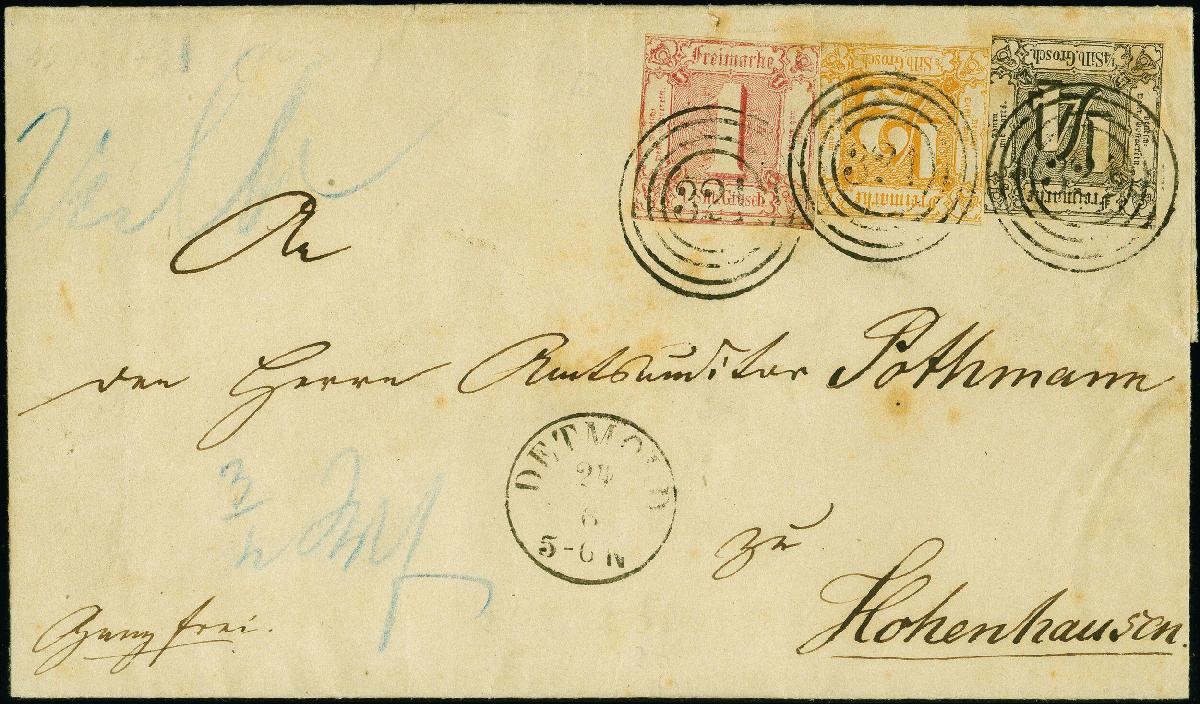 Freimarke
1
Silb. Grosch
321
½ Silb. Grosch
Freimarke
321
¼ Silb. Grosch.
Freimarke
An
den Herrn Amtsauditor Pothmann
DETMOLD
24
6
5-6 N
zu
Hohenhausen.
Ganz frei.